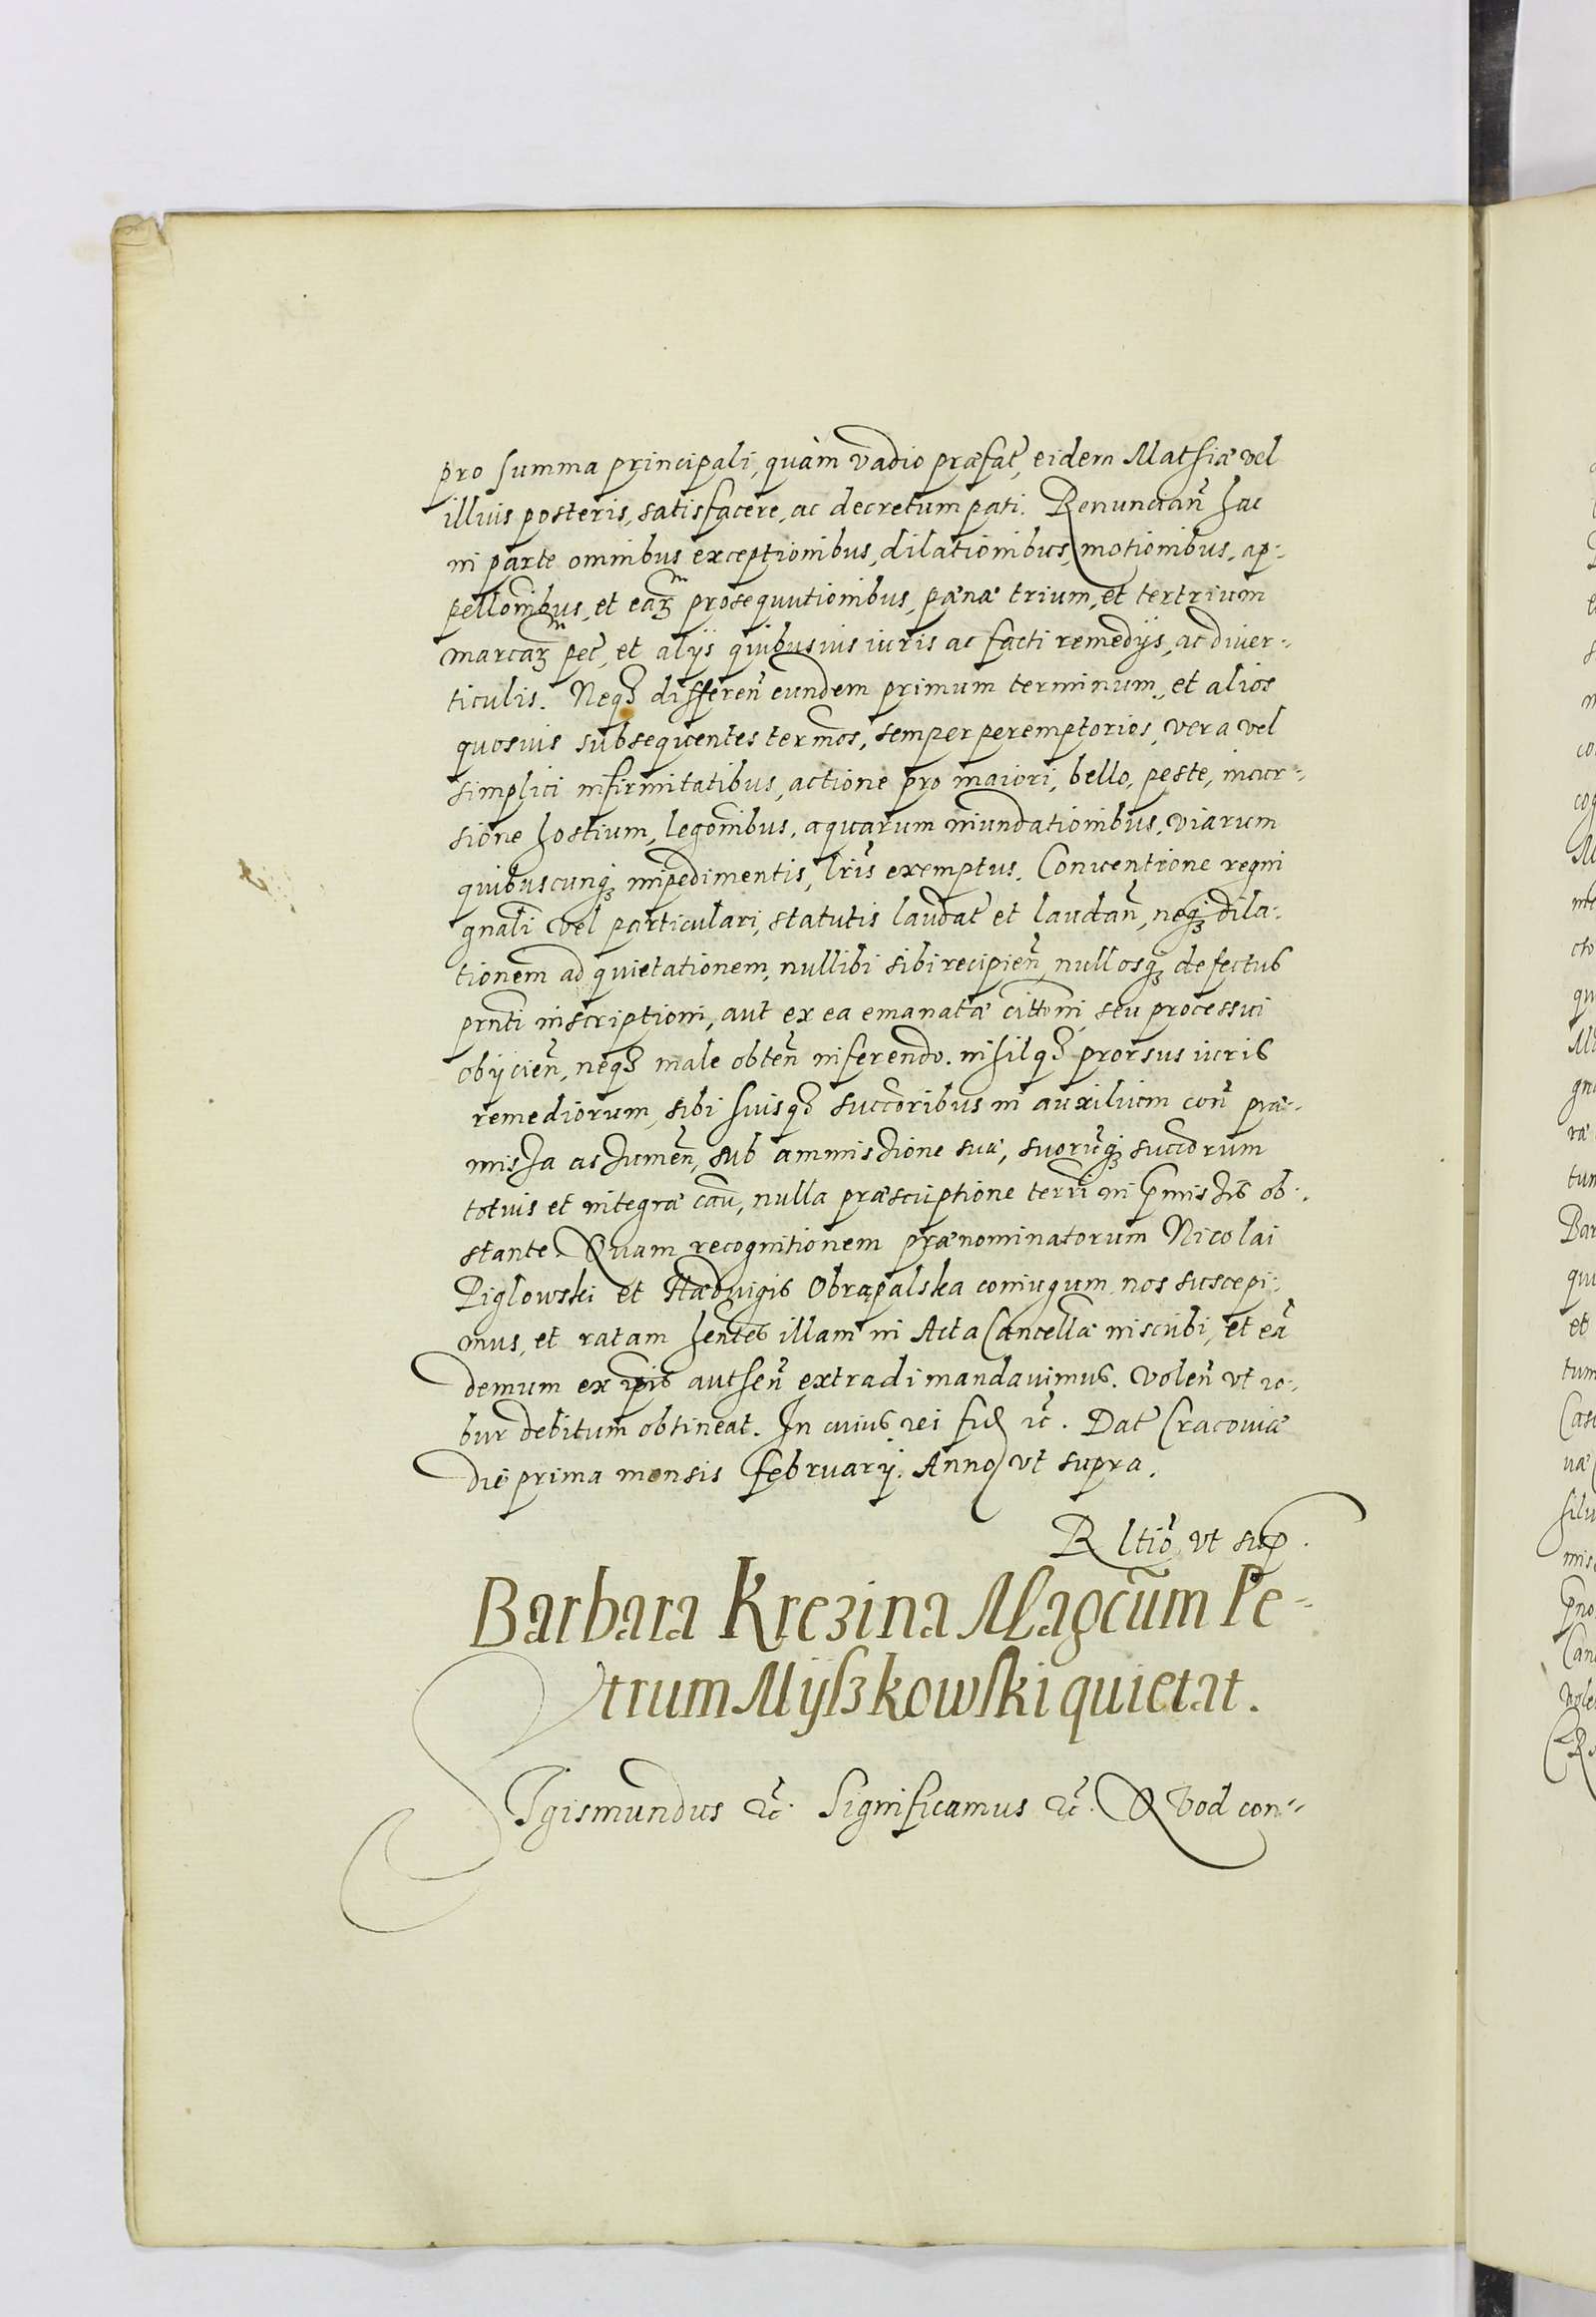 pro summa principali, quàm vadio præfat̃, eidem Mathiæ vel
illius posteris, satisfacere, ac decretum pati. Renuncian̄ hac
in parte omnibus exceptionibus, dilationibus, motionibus, ap-
pellõnibus, et eaꝝ prosequutionibus, pænæ trium, et tertrium
marcaꝝ pec̃, et alijs quibusuis iuris ac facti remedijs, ac diuer-
ticulis. Neqꝫ differen̄ eundem primum terminum, et alios
quosuis subsequentes termõs, semper peremptorios, vera vel
simplici infirmitatibus, actione pro maiori, bello, peste, incur-
sione hostium, legõnibus, aquarum inundationibus, viarum
quibuscunqꝫ impedimentis, lr̃is exemptus. Conuentione regni
gnãli vel particulari, statutis laudat̃ et laudan̄, neqꝫ dila-
tionem ad quietationem, nullibi sibi recipien̄, nullosqꝫ defectus
prñti inscriptioni, aut ex ea emanatæ cittõni, seu processui
obijcien̄, neqꝫ male obten̄ inferendo. nihilqꝫ prorsus iuris
remediorum, sibi suisqꝫ succõribus in auxilium con̄ præ-
missa assumen̄, sub ammissione suæ, suorũqꝫ succõrum
totius et integræ cau̅, nulla præscriptione terrĩ in p̃missis ob-
stante. Quam recognitionem prænominatorum Nicolai
Piglowski et Hæduigis Obrapalska coniugum, nos suscepi-
mus, et ratam hẽntes illam in Acta Cancellæ inscribi, et eã
demum ex ip̃is authen̄ extradi mandauimus. Volen̄ vt ro-
bur debitum obtineat. In cuius rei fid ꝛc̃. Dat̃ Cracouiæ
die prima mensis februarij. Anno vt supra.
R ltiõ vt sup.
Barbara Krezina Magcũm Pe-
trum Mijszkowski quietat.
Sigismundus ꝛc̃. Significamus ꝛc̃. Qvod con-